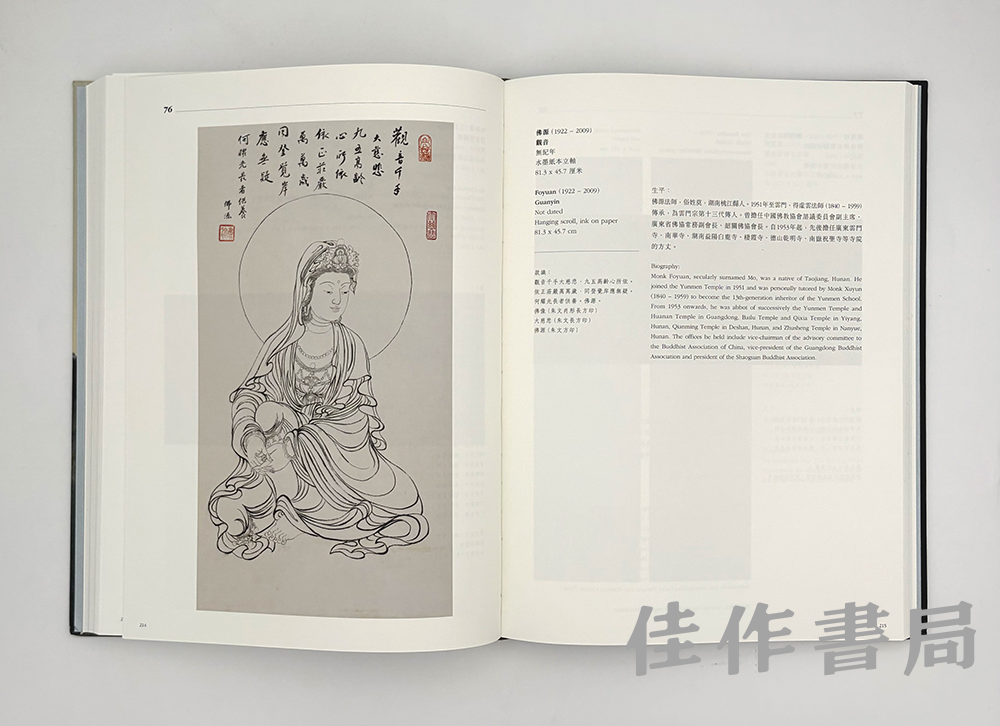 76
觀音千手
大慈悲
九五高齡
心所依
依正莊嚴
萬萬歲
同登覺岸
應無疑
何耀光長者供養
佛源
214
佛源 (1922 – 2009)
觀音
無紀年
水墨紙本立軸
81.3 x 45.7 厘米
Foyuan (1922 – 2009)
Guanyin
Not dated
Hanging scroll, ink on paper
81.3 x 45.7 cm
款識：
觀音千手大慈悲，九五高齡心所依。
依正莊嚴萬萬歲，同登覺岸應無疑。
何耀光長者供養。佛源。
佛像 (朱文肖形長方印)
大慈悲 (朱文長方印)
佛源 (朱文方印)
生平：
佛源法師，俗姓莫，湖南桃江縣人。1951年至雲門，得虛雲法師 (1840 – 1959)
傳承，為雲門宗第十三代傳人。曾擔任中國佛教協會諮議委員會副主席，
廣東省佛協常務副會長，韶關佛協會長。自1953年起，先後擔任廣東雲門
寺、南華寺，湖南益陽白鹿寺、棲霞寺、德山乾明寺、南嶽祝聖寺等寺院
的方丈。
Biography:
Monk Foyuan, secularly surnamed Mo, was a native of Taojiang, Hunan. He
joined the Yunmen Temple in 1951 and was personally tutored by Monk Xuyun
(1840 – 1959) to become the 13th-generation inheritor of the Yunmen School.
From 1953 onwards, he was abbot of successively the Yunmen Temple and
Huanan Temple in Guangdong, Bailu Temple and Qixia Temple in Yiyang,
Hunan, Qianming Temple in Deshan, Hunan, and Zhusheng Temple in Nanyue,
Hunan. The offices he held include vice-chairman of the advisory committee to
the Buddhist Association of China, vice-president of the Guangdong Buddhist
Association and president of the Shaoguan Buddhist Association.
215
佳作書局